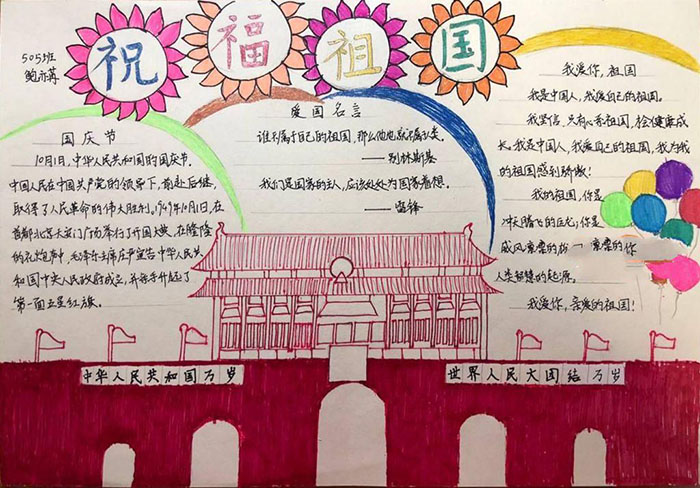 祝福祖国
505班
鲍亦菡
国庆节
10月1日,中华人民共和国的国庆节。
中国人民在中国共产党的领导下,前赴后继,
取得了人民革命的伟大胜利。1949年10月1日,在
首都北京天安门广场举行了开国大典,在隆隆
的礼炮声中,毛泽东主席庄严宣告中华人民共
和国中央人民政府成立,并亲手升起了
第一面五星红旗。
爱国名言
谁不属于自己的祖国,那么他也就不属于人类。
——别林斯基
我们是国家的主人,应该处处为国家着想。
——雷锋
我爱你,祖国
我是中国人,我爱自己的祖国。
我坚信,只有心系祖国,才会健康成
长。我是中国人,我爱自己的祖国,我为我
的祖国感到骄傲!
我的祖国,你是
冲天腾飞的巨龙;你是
威风凛凛的 凛凛的你
人类智慧的起源。
我爱你,亲爱的祖国!
中华人民共和国万岁
世界人民大团结万岁